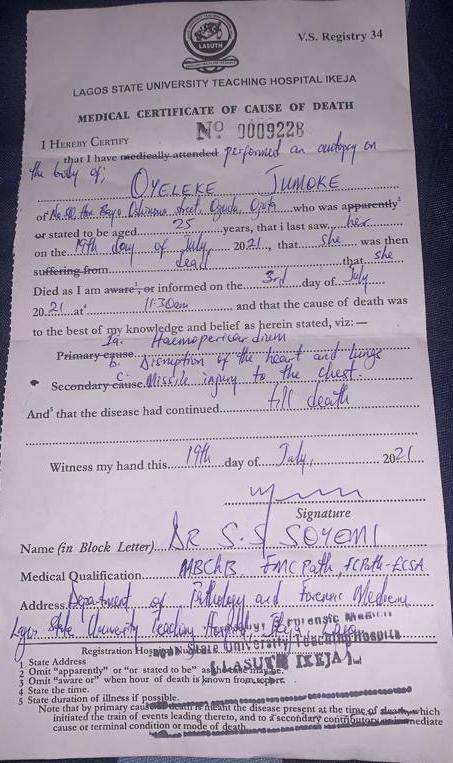 LASUTH
V.S. Registry 34
LAGOS STATE UNIVERSITY TEACHING HOSPITAL IKEJA
MEDICAL CERTIFICATE OF CAUSE OF DEATH
I HEREBY CERTIFY No 0009228
that I have medically attended performed an autopsy on
the body of;
OYELEKE JUMOKE
of No. street, Ojota who was apparently²
or stated to be aged 25 years, that i last saw her
on the 19th day of July 2021, that she was then
suffering from dead that she
Died as I am aware³, or informed on the 3rd day of July
20 21 at⁴ 11.30am and that the cause of death was
to the best of my knowledge and belief as herein stated, viz: —
Ia. Haemopericardium
Primary cause b. Disruption of the heart and lungs
Secondary cause c. Missile injury to the chest.
And⁵ that the disease had continued till death
Witness my hand this 19th day of July, 2021
Signature
Name (in Block Letter) DR S.S SOYEMI
Medical Qualification MBCHB, FMCPath, FCPath-ECSA
Address Department of Pathology and Forensic Medicine
Lagos State University Teaching Hospital, Ikeja
Forensic Medicine
State University Teaching Hospital
Registration
(LASUTH IKEJA)
1 State Address
2 Omit "apparently" or "or stated to be" as the case may be.
3 Omit "aware or" when hour of death is known from
4 State the time.
5 State duration of illness if possible.
Note that by primary cause death is meant the disease present at the time of death, which
initiated the train of events leading thereto, and to a secondary contributory or immediate
cause or terminal condition or mode of death